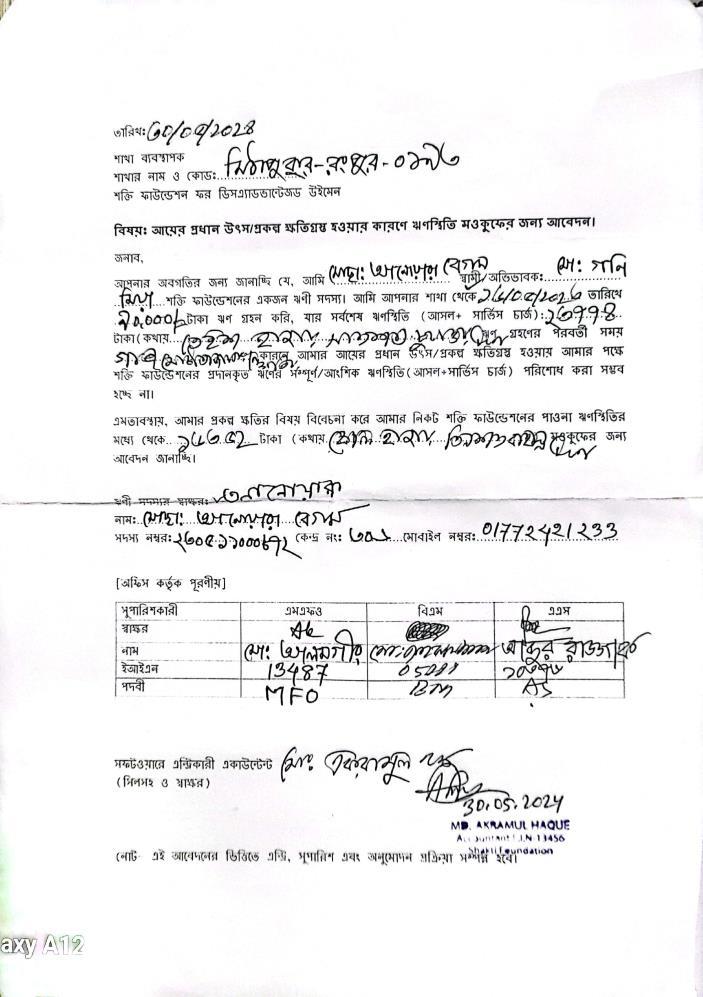 তারিখ: ৩০/০৫/২০২৪
শাখা ব্যবস্থাপক
শাখার নাম ও কোড: মিঠাপুকুর-রংপুর-০১৯৩
শক্তি ফাউন্ডেশন ফর ডিসএ্যাডভান্টেজড উইমেন
বিষয়: আয়ের প্রধান উৎস/প্রকল্প ক্ষতিগ্রস্ত হওয়ার কারণে ঋণস্থিতি মওকুফের জন্য আবেদন।
জনাব,
আপনার অবগতির জন্য জানাচ্ছি যে, আমি মোছা: আনোয়ারা বেগম স্বামী/অভিভাবক: মো: গনি
মিয়া শক্তি ফাউন্ডেশনের একজন ঋণী সদস্য। আমি আপনার শাখা থেকে তারিখে
টাকা ঋণ গ্রহন করি, যার সর্বশেষ ঋণস্থিতি (আসল+ সার্ভিস চার্জ):
টাকা (কথায় হাজার সাতশত ঋণ গ্রহণের পরবর্তী সময়
কারনে আমার আয়ের প্রধান উৎস/প্রকল্প ক্ষতিগ্রস্ত হওয়ায় আমার পক্ষে
শক্তি ফাউন্ডেশনের প্রদানকৃত ঋণের সম্পূর্ণ/আংশিক ঋণস্থিতি (আসল+সার্ভিস চার্জ) পরিশোধ করা সম্ভব
হচ্ছে না।
এমতাবস্থায়, আমার প্রকল্প ক্ষতির বিষয় বিবেচনা করে আমার নিকট শক্তি ফাউন্ডেশনের পাওনা ঋণস্থিতির
মধ্যে থেকে টাকা (কথায় হাজার তিনশত মওকুফের জন্য
আবেদন জানাচ্ছি।
ঋণী সদস্যের স্বাক্ষর: আনোয়ারা
নাম: মোছা: আনোয়ারা বেগম
সদস্য নম্বর: কেন্দ্র নং: মোবাইল নম্বর: 01772421233
[অফিস কর্তৃক পূরণীয়]
সুপারিশকারী এমএফও বিএম এএস
স্বাক্ষর
নাম মো: আলমগীর আব্দুর রাজ্জাক
ইআইএন 13487
পদবী MFO BM AS
সফটওয়ারে এন্ট্রিকারী একাউন্টেন্ট মোঃ একরামুল হক
(সিলসহ ও স্বাক্ষর)
30.05.2024
MD. AKRAMUL HAQUE
Accountant I.N-13456
Shakti Foundation
নোট- এই আবেদনের ভিত্তিতে এন্ট্রি, সুপারিশ এবং অনুমোদন প্রক্রিয়া সম্পন্ন হবে।
axy A12